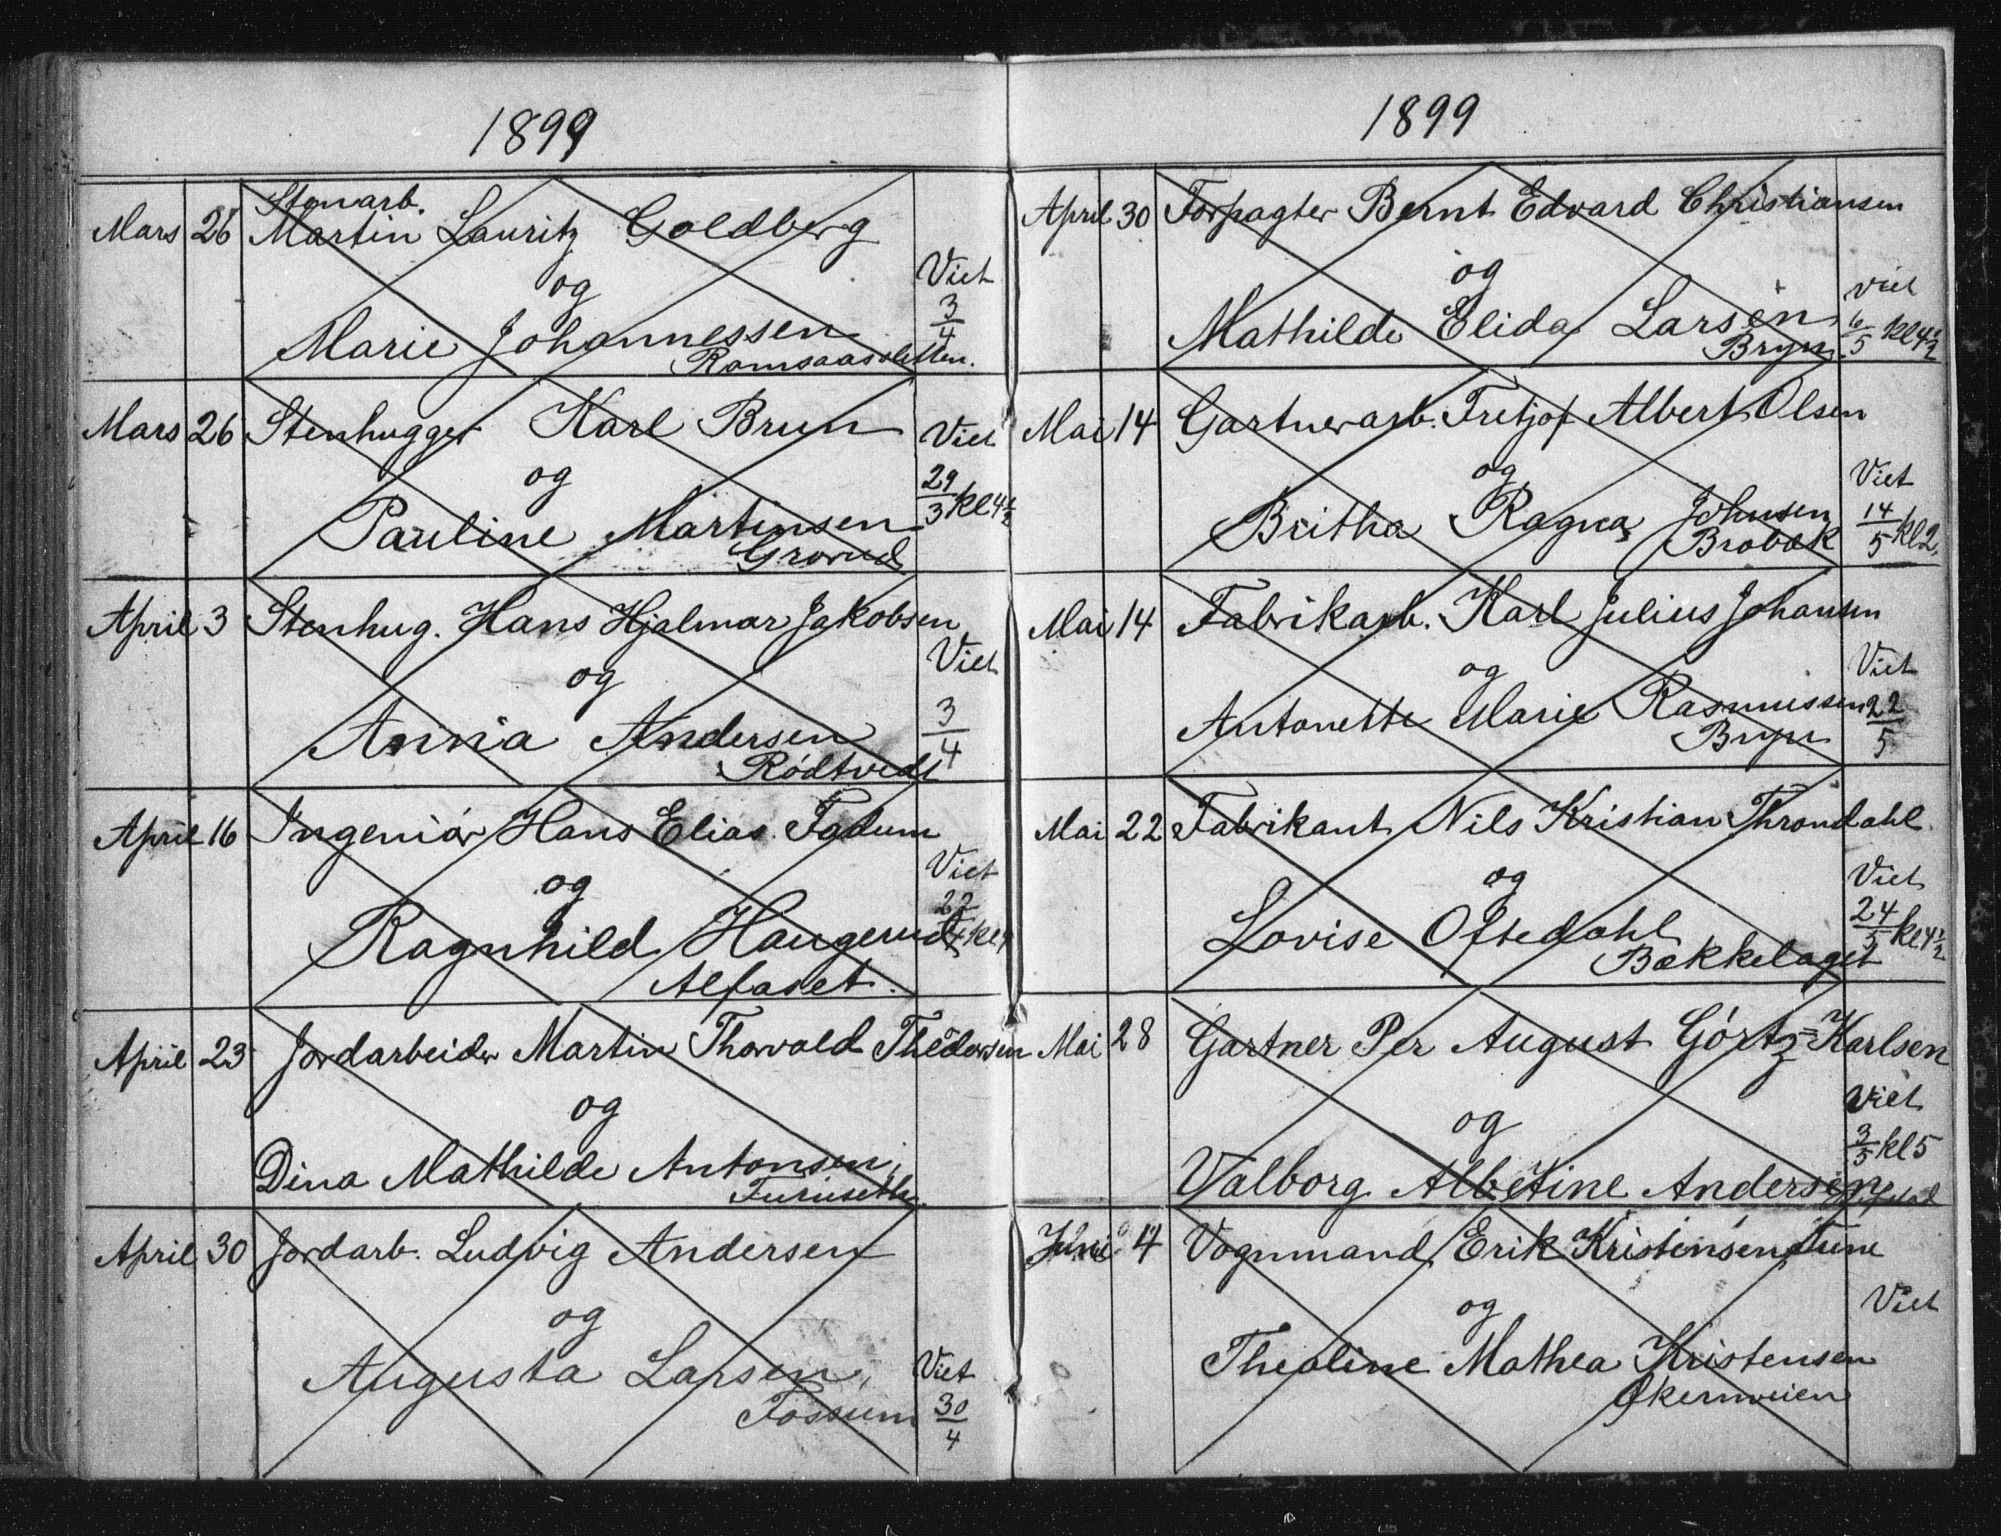 1899
Stenarb.
Mars 26 Martin Lauritz Goldberg
og
Viet 3/4
Marie Johannessen
Ramsaassletten.
Mars 26 Stenhugger Karl Brun
og
Viet 29/3 kl 4½
Pauline Martinsen
Grorud
April 3 Stenhug. Hans Hjalmar Jakobsen
og
Viet 3/4
Anna Andersen
Rødtvedt
April 16 Ingeniør Hans Elias Fadum
og
Viet 22/4
Ragnhild Haugerud
Alfaset.
April 23 Jordarbeider Martin Thorvald Theodorsen
og
Dina Mathilde Antonsen
Furuseth
April 30 Jordarb. Ludvig Andersen
og
Augusta Larsen,
Fossum
Viet 30/4
1899
April 30 Forpagter Bernt Edvard Christiansen
og
Viet 6/5 kl 4½
Mathilde Elida Larsen
Bryn.
Mai 14 Gartnerarb. Fretjof Albert Olsen
og
Viet 14/5 kl 2.
Britha Ragna Johnsen
Brobæk
Mai 14 Fabrikarb. Karl Julius Johansen
og
Viet 22/5
Antonette Marie Rasmussen
Bryn
Mai 22 Fabrikant Nils Kristian Throndahl.
og
Viet 24/5 kl 4½
Lovise Oftedahl
Bækkelaget
Mai 28 Gartner Per August Görtz=Karlsen
og
Viet 3/5 kl 5
Valborg Albetine Andersen
Juni 4 Vognmand Erik Kristensen Tune
og
Viet
Thealine Mathea Kristensen
Økernveien